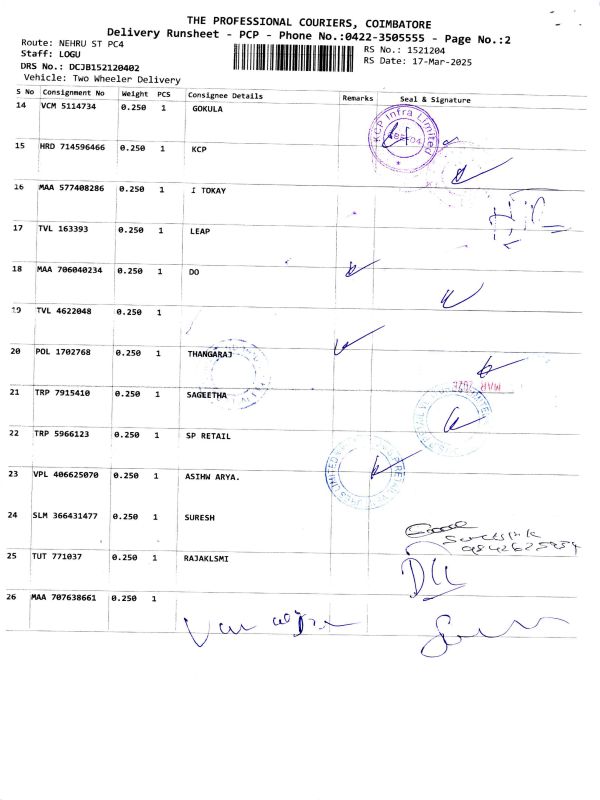 THE PROFESSIONAL COURIERS, COIMBATORE
Delivery Runsheet - PCP - Phone No.:0422-3505555 - Page No.:2
Route: NEHRU ST PC4
RS No.: 1521204
Staff: LOGU
RS Date: 17-Mar-2025
DRS No.: DCJB152120402
Vehicle: Two Wheeler Delivery
S No Consignment No Weight PCS Consignee Details Remarks Seal & Signature
14 VCM 5114734 0.250 1 GOKULA
KCP Infra Limited
15 HRD 714596466 0.250 1 KCP
16 MAA 577408286 0.250 1 I TOKAY
17 TVL 163393 0.250 1 LEAP
18 MAA 706040234 0.250 1 DO
19 TVL 4622048 0.250 1
20 POL 1702768 0.250 1 THANGARAJ
21 TRP 7915410 0.250 1 SAGEETHA
22 TRP 5966123 0.250 1 SP RETAIL
23 VPL 406625070 0.250 1 ASIHW ARYA.
24 SLM 366431477 0.250 1 SURESH
25 TUT 771037 0.250 1 RAJAKLSMI
26 MAA 707638661 0.250 1